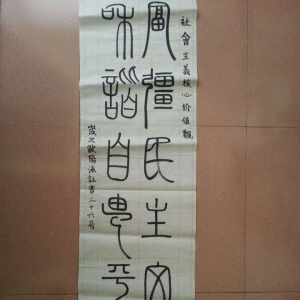 社會主義核心价值觀
富彊民主文
和諧自由平
歐陽泳江書二十六号